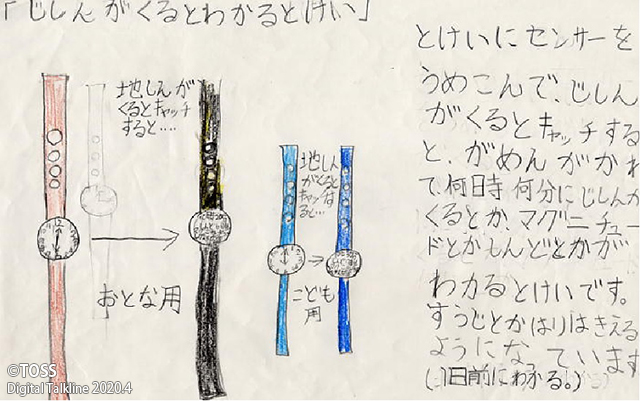 「じしんがくるとわかるとけい」
地しんが
くるとキャッチ
すると‥‥
おとな用
地しん
がくると
キャッチす
ると…
こども
用
とけいにセンサーを
うめこんで、じしん
がくるとキャッチする
と、がめんがかわ
て、何日寺何分にじしんが
くるとか、マグニチュー
ドとかしんどとかが
わかるとけいです。
すうじとかはりはきえる
ようになっています
(1日前にわかる。)
©TOSS
Digital Talkline 2020.4